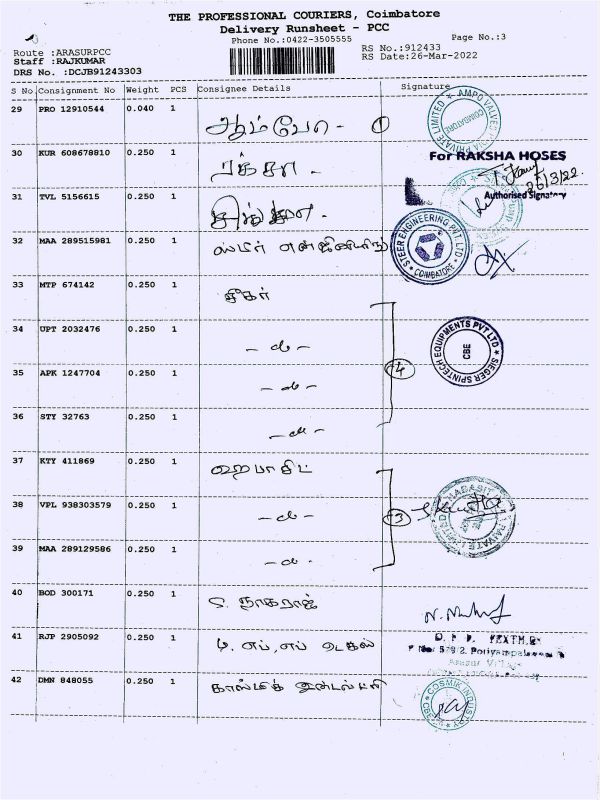 THE PROFESSIONAL COURIERS, Coimbatore
Delivery Runsheet - PCC
Phone No.:0422-3505555
Page No.:3
Route :ARASURPCC
RS No.:912433
Staff :RAJKUMAR
RS Date:26-Mar-2022
DRS No. :DCJB91243303
S No. Consignment No Weight PCS Consignee Details Signature
29 PRO 12910544 0.040 1 ஆம்போ - ①
AMPO VALVES PRIVATE LIMITED COIMBATORE
30 KUR 608678810 0.250 1 ரக்சா -
For RAKSHA HOSES
26/3/22
Authorised Signatory
31 TVL 5156615 0.250 1
32 MAA 289515981 0.250 1 ஸ்டீர் என்ஜினியரிங்
STEER ENGINEERING PVT LTD COIMBATORE
33 MTP 674142 0.250 1 சீகர்
34 UPT 2032476 0.250 1 - do -
SIEGER SPINTECH EQUIPMENTS PVT LTD CBE
35 APK 1247704 0.250 1 - do - ④
36 STY 32763 0.250 1 - do -
37 KTY 411869 0.250 1 ஹபாசிட்
38 VPL 938303579 0.250 1 - do - ③
HABASIT PRIVATE LIMITED
39 MAA 289129586 0.250 1 - do -
40 BOD 300171 0.250 1 S. நாகராஜ்
41 RJP 2905092 0.250 1
42 DMN 848055 0.250 1 காஸ்மிக் இன்டஸ்ட்ரி
COSMIK INDUSTRY CBE